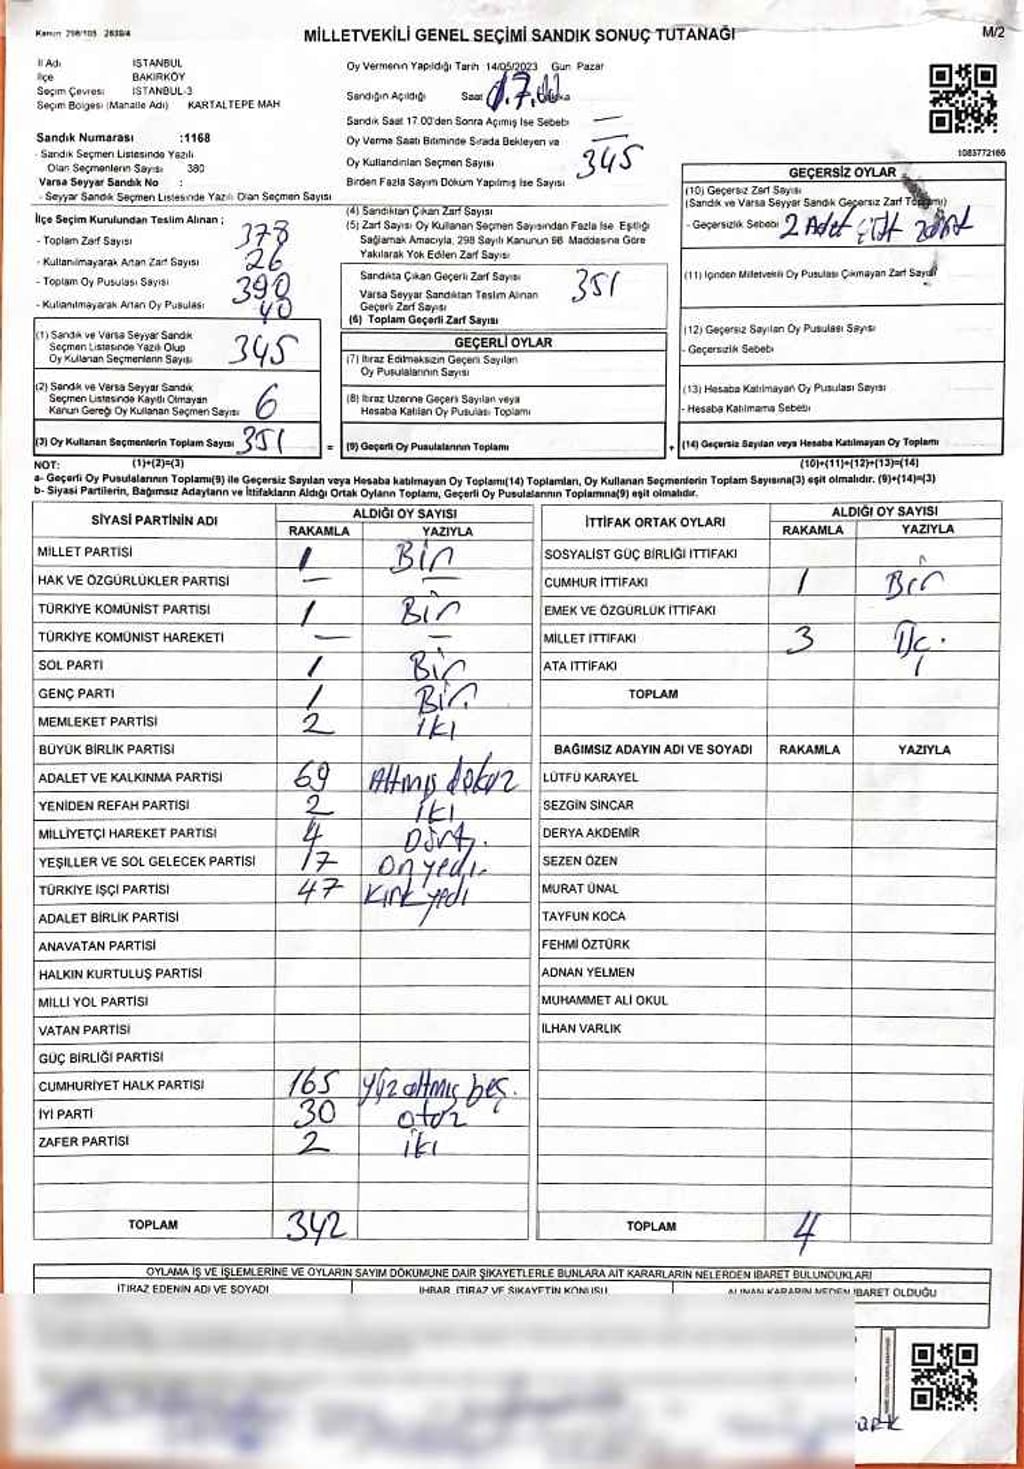 Kanun 298/105 2839/4
MİLLETVEKİLİ GENEL SEÇİMİ SANDIK SONUÇ TUTANAĞI
M/2
İl Adı İSTANBUL
İlçe BAKIRKÖY
Seçim Çevresi İSTANBUL-3
Seçim Bölgesi (Mahalle Adı) KARTALTEPE MAH
Sandık Numarası :1168
- Sandık Seçmen Listesinde Yazılı
Olan Seçmenlerin Sayısı 380
Varsa Seyyar Sandık No :
- Seyyar Sandık Seçmen Listesinde Yazılı Olan Seçmen Sayısı
Oy Vermenin Yapıldığı Tarih 14/05/2023 Gün Pazar
Sandığın Açıldığı Saat
Sandık Saat 17.00'den Sonra Açılmış İse Sebebi —
Oy Verme Saati Bitiminde Sırada Bekleyen ve —
Oy Kullandırılan Seçmen Sayısı 345
Birden Fazla Sayım Döküm Yapılmış İse Sayısı
1083772166
İlçe Seçim Kurulundan Teslim Alınan ;
- Toplam Zarf Sayısı 378
- Kullanılmayarak Artan Zarf Sayısı 26
- Toplam Oy Pusulası Sayısı 390
- Kullanılmayarak Artan Oy Pusulası 40
(1) Sandık ve Varsa Seyyar Sandık
Seçmen Listesinde Yazılı Olup
Oy Kullanan Seçmenlerin Sayısı 345
(2) Sandık ve Varsa Seyyar Sandık
Seçmen Listesinde Kayıtlı Olmayan
Kanun Gereği Oy Kullanan Seçmen Sayısı 6
(3) Oy Kullanan Seçmenlerin Toplam Sayısı 351 =
(4) Sandıktan Çıkan Zarf Sayısı
(5) Zarf Sayısı Oy Kullanan Seçmen Sayısından Fazla İse Eşitliği
Sağlamak Amacıyla, 298 Sayılı Kanunun 98 Maddesine Göre
Yakılarak Yok Edilen Zarf Sayısı
Sandıkta Çıkan Geçerli Zarf Sayısı 351
Varsa Seyyar Sandıktan Teslim Alınan
Geçerli Zarf Sayısı
(6) Toplam Geçerli Zarf Sayısı
GEÇERLİ OYLAR
(7) İtiraz Edilmeksizin Geçerli Sayılan
Oy Pusulalarının Sayısı
(8) İtiraz Üzerine Geçerli Sayılan veya
Hesaba Katılan Oy Pusulası Toplamı
(9) Geçerli Oy Pusulalarının Toplamı +
GEÇERSİZ OYLAR
(10) Geçersiz Zarf Sayısı
(Sandık ve Varsa Seyyar Sandık Geçersiz Zarf Toplamı)
- Geçersizlik Sebebi 2 Adet çift zarf
(11) İçinden Milletvekili Oy Pusulası Çıkmayan Zarf Sayısı
(12) Geçersiz Sayılan Oy Pusulası Sayısı
- Geçersizlik Sebebi
(13) Hesaba Katılmayan Oy Pusulası Sayısı
- Hesaba Katılmama Sebebi
(14) Geçersiz Sayılan veya Hesaba Katılmayan Oy Toplamı
NOT: (1)+(2)=(3) (10)+(11)+(12)+(13)=(14)
a- Geçerli Oy Pusulalarının Toplamı(9) ile Geçersiz Sayılan veya Hesaba katılmayan Oy Toplamı(14) Toplamları, Oy Kullanan Seçmenlerin Toplam Sayısına(3) eşit olmalıdır. (9)+(14)=(3)
b- Siyasi Partilerin, Bağımsız Adayların ve İttifakların Aldığı Ortak Oyların Toplamı, Geçerli Oy Pusulalarının Toplamına(9) eşit olmalıdır.
SİYASİ PARTİNİN ADI ALDIĞI OY SAYISI
RAKAMLA YAZIYLA
MİLLET PARTİSİ 1 Bir
HAK VE ÖZGÜRLÜKLER PARTİSİ — —
TÜRKİYE KOMÜNİST PARTİSİ 1 Bir
TÜRKİYE KOMÜNİST HAREKETİ — —
SOL PARTİ 1 Bir
GENÇ PARTİ 1 Bir.
MEMLEKET PARTİSİ 2 iki
BÜYÜK BİRLİK PARTİSİ
ADALET VE KALKINMA PARTİSİ 69 Altmış dokuz
YENİDEN REFAH PARTİSİ 2 iki
MİLLİYETÇİ HAREKET PARTİSİ 4 Dört.
YEŞİLLER VE SOL GELECEK PARTİSİ 17 On yedi.
TÜRKİYE İŞÇİ PARTİSİ 47 Kırk yedi
ADALET BİRLİK PARTİSİ
ANAVATAN PARTİSİ
HALKIN KURTULUŞ PARTİSİ
MİLLİ YOL PARTİSİ
VATAN PARTİSİ
GÜÇ BİRLİĞİ PARTİSİ
CUMHURİYET HALK PARTİSİ 165 Yüz altmış beş.
İYİ PARTİ 30 otuz
ZAFER PARTİSİ 2 iki
TOPLAM 342
İTTİFAK ORTAK OYLARI ALDIĞI OY SAYISI
RAKAMLA YAZIYLA
SOSYALİST GÜÇ BİRLİĞİ İTTİFAKI
CUMHUR İTTİFAKI 1 Bir
EMEK VE ÖZGÜRLÜK İTTİFAKI
MİLLET İTTİFAKI 3 Üç.
ATA İTTİFAKI
TOPLAM
BAĞIMSIZ ADAYIN ADI VE SOYADI RAKAMLA YAZIYLA
LÜTFÜ KARAYEL
SEZGİN SİNCAR
DERYA AKDEMİR
SEZEN ÖZEN
MURAT ÜNAL
TAYFUN KOCA
FEHMİ ÖZTÜRK
ADNAN YELMEN
MUHAMMET ALİ OKUL
İLHAN VARLIK
TOPLAM 4
OYLAMA İŞ VE İŞLEMLERİNE VE OYLARIN SAYIM DÖKÜMÜNE DAİR ŞİKAYETLERLE BUNLARA AİT KARARLARIN NELERDEN İBARET BULUNDUKLARI
İTİRAZ EDENİN ADI VE SOYADI İHBAR, İTİRAZ VE ŞİKAYETİN KONUSU ALINAN KARARIN NEDEN İBARET OLDUĞU